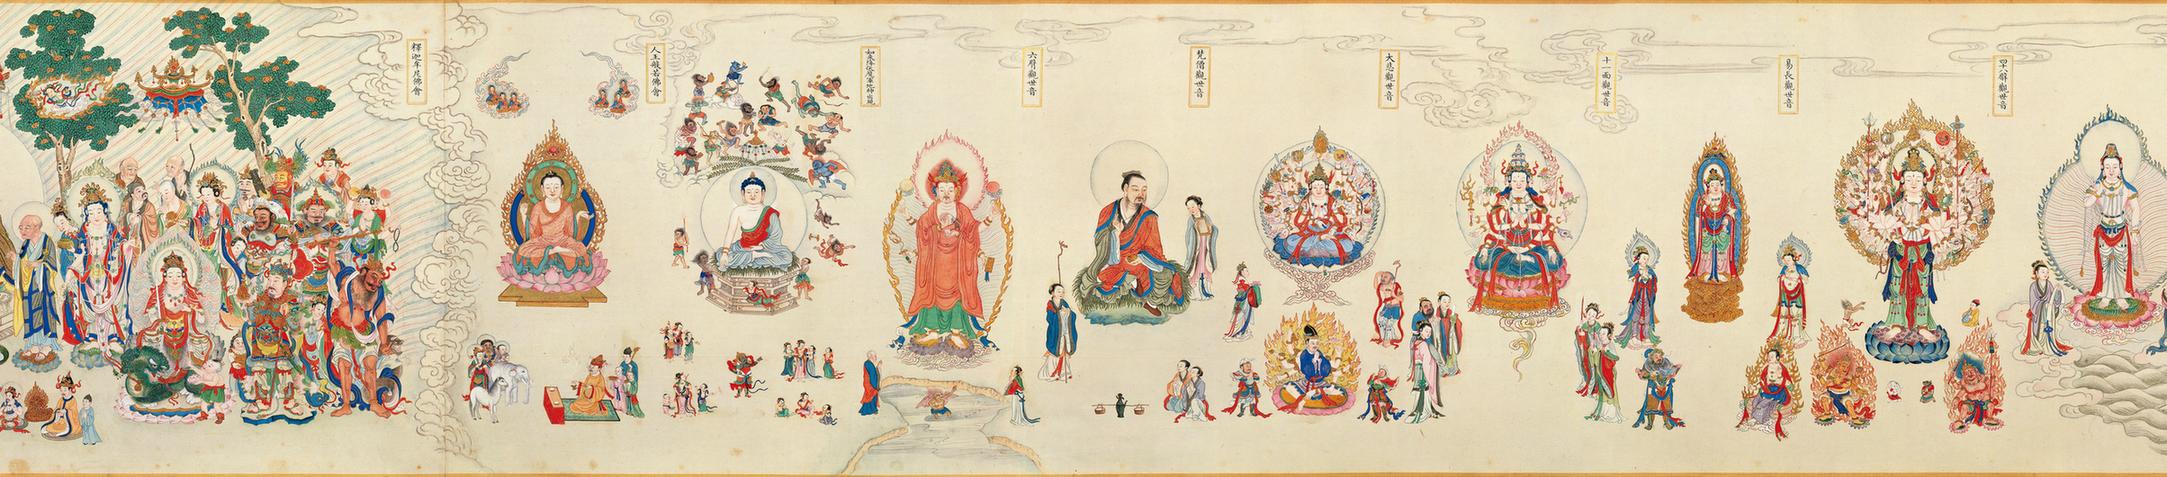 臂觀世音
易長觀世音
十一面觀世音
大悲觀世音
梵僧觀世音
六臂觀世音
如來降伏魔軍地神出現
人主般若佛會
釋迦牟尼佛會